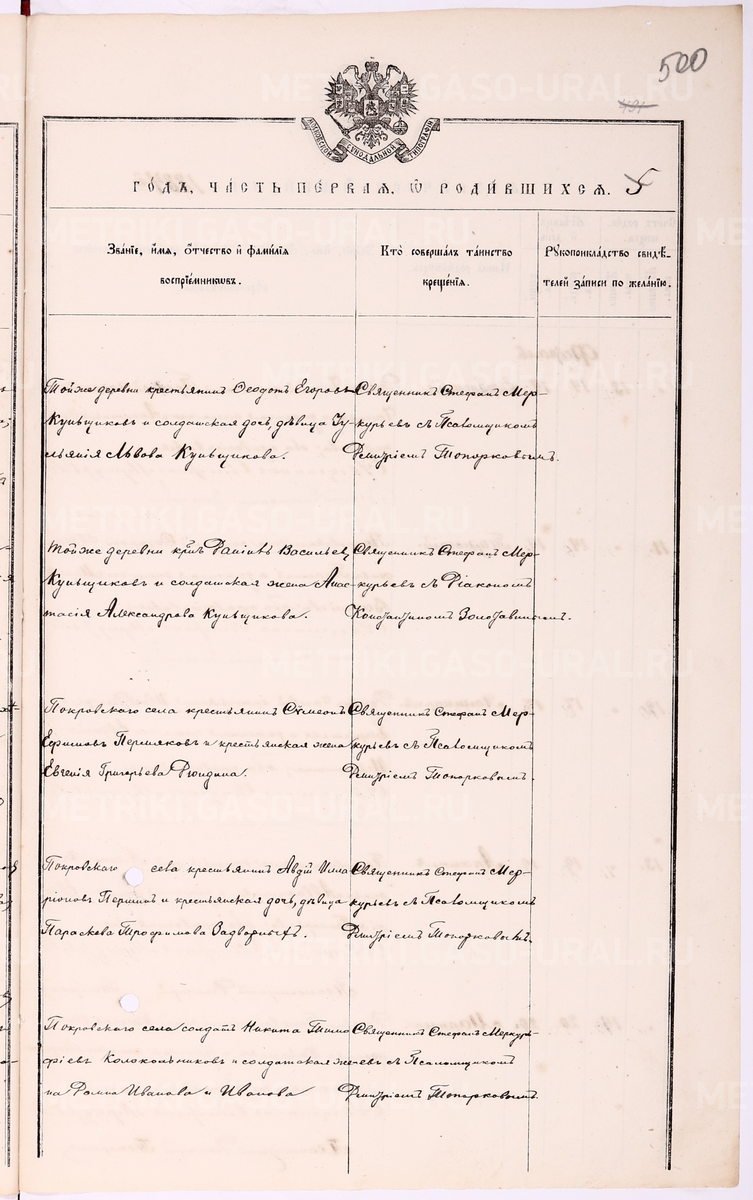 500
METRIKI.GASO-URAL.RU
МОСКОВСКОЙ СѴНОДАЛЬНОЙ ТИПОГРАФІИ
ГОДЪ, ЧАСТЬ ПЕРВАЯ, Ѡ РОДИВШИХСЯ. 5
Званіе, имя, отчество и фамилія
воспріемниковъ.
Кто совершалъ таинство
крещенія.
Рукоприкладство свидѣ-
телей записи по желанію.
Той же деревни крестьянинъ Ѳеодотъ Егоровъ
Куньщиковъ и солдатская дочь, дѣвица Іу
льянія Львова Куньщикова.
Священникъ Стефанъ Мер-
курьевъ съ Псаломщикомъ
Димитріемъ Топорковымъ.
Той же деревни Васильевъ
Куньщиковъ и солдатская жена Анас
тасія Александрова Куньщикова.
Священникъ Стефанъ Мер-
курьевъ съ Діакономъ
Константиномъ Золотавинымъ.
Покровскаго села крестьянинъ Сѵмеонъ
Ефимовъ Пермяковъ и крестьянская жена
Евгенія Григорьева
Священникъ Стефанъ Мер-
курьевъ съ Псаломщикомъ
Димитріемъ Топорковымъ.
Покровскаго села крестьянинъ Авдій Илла
ріоновъ и крестьянская дочь, дѣвица
Параскева Трофимова Задворныхъ.
Священникъ Стефанъ Мер-
курьевъ съ Псаломщикомъ
Димитріемъ Топорковымъ.
Покровскаго села солдатъ Никита Тимо
фіевъ Колокольниковъ и солдатская же-
на Домна Иванова и Иванова
Священникъ Стефанъ Меркурь-
евъ съ Псаломщикомъ
Димитріемъ Топорковымъ.